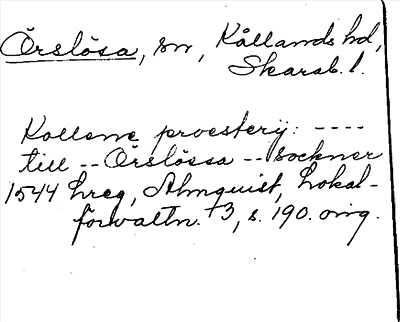 Örslösa, sn, Kållands hd,
Skarab. l.
Kollene proesterij: ----
till -- Örslössa -- sockner
1544 hreg, Almquist, Lokal-
förvaltn. 3, s. 190. orig.